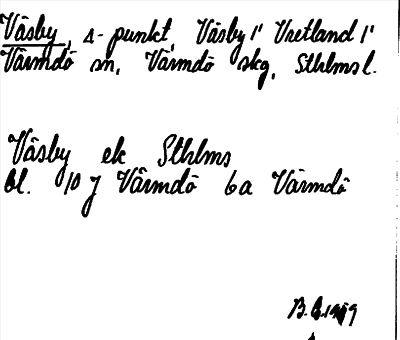 Väsby, 4-punkt, Väsby 1' Vretland 1'
Värmdö sn, Värmdö skg, Sthlms l.
Väsby ek Sthlms
bl. 10 J Värmdö 6a Värmdö